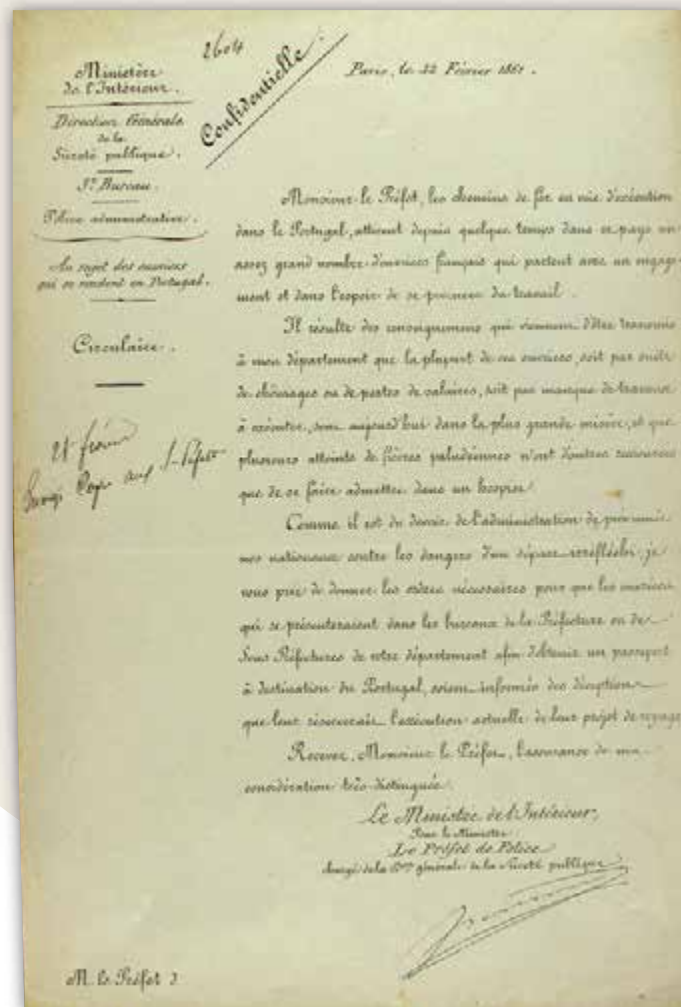 2604
Confidentielle
Ministère
de l'Intérieur.
Direction Générale
de la
Sûreté publique.
3e Bureau.
Police administrative.
Au sujet des ouvriers
qui se rendent en Portugal.
Circulaire.
Paris, le 22 Février 1861.
Monsieur le Préfet, les chemins de fer en voie d'exécution
dans le Portugal, attirent depuis quelques temps dans ce pays un
assez grand nombre d'ouvriers français qui partent avec un engage-
ment et dans l'espoir de se procurer du travail.
Il résulte des renseignemens qui viennent d'être transmis
à mon département que la plupart de ces ouvriers, soit par suite
de chômages ou de pertes de salaires, soit par manque de travaux
à exécuter, sont aujourd'hui dans la plus grande misère, et que
plusieurs atteints de fièvres paludéennes n'ont d'autres ressources
que de se faire admettre dans un hospice.
Comme il est du devoir de l'administration de prémunir
nos nationaux contre les dangers d'un départ irréfléchi, je
vous prie de donner les ordres nécessaires pour que les ouvriers
qui se présenteraient dans les bureaux de la Préfecture ou des
Sous Préfectures de votre département afin d'obtenir un passeport
à destination du Portugal, soient informés des déceptions
que leur réserverait l'exécution actuelle de leur projet de voyage.
Recevez, Monsieur le Préfet, l'assurance de ma
considération très distinguée.
Le Ministre de l'Intérieur,
Pour le Ministre
Le Préfet de Police
chargé de la Don générale de la Sûreté publique
aux S-Préfets
M. le Préfet d